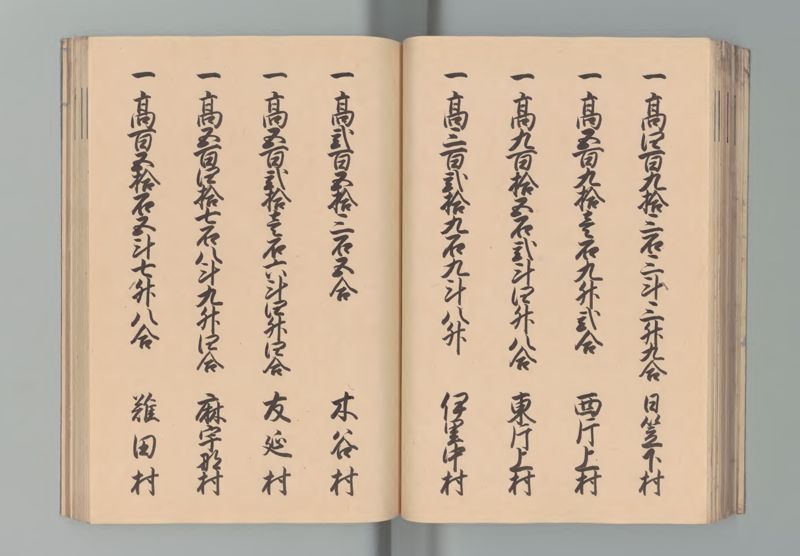 一 高四百九拾三石三斗三升九合 日笠下村
一 高五百九拾壱石九升弐合 西片上村
一 高九百拾五石弐斗四升八合 東片上村
一 高三百弐拾九石九斗八升 伊里中村
一 高弐百五拾三石五合 木谷村
一 高五百弐拾壱石六斗四升四合 友延村
一 高五百四拾七石八斗九升四合 麻宇那村
一 高百五拾石五斗七升八合 難田村